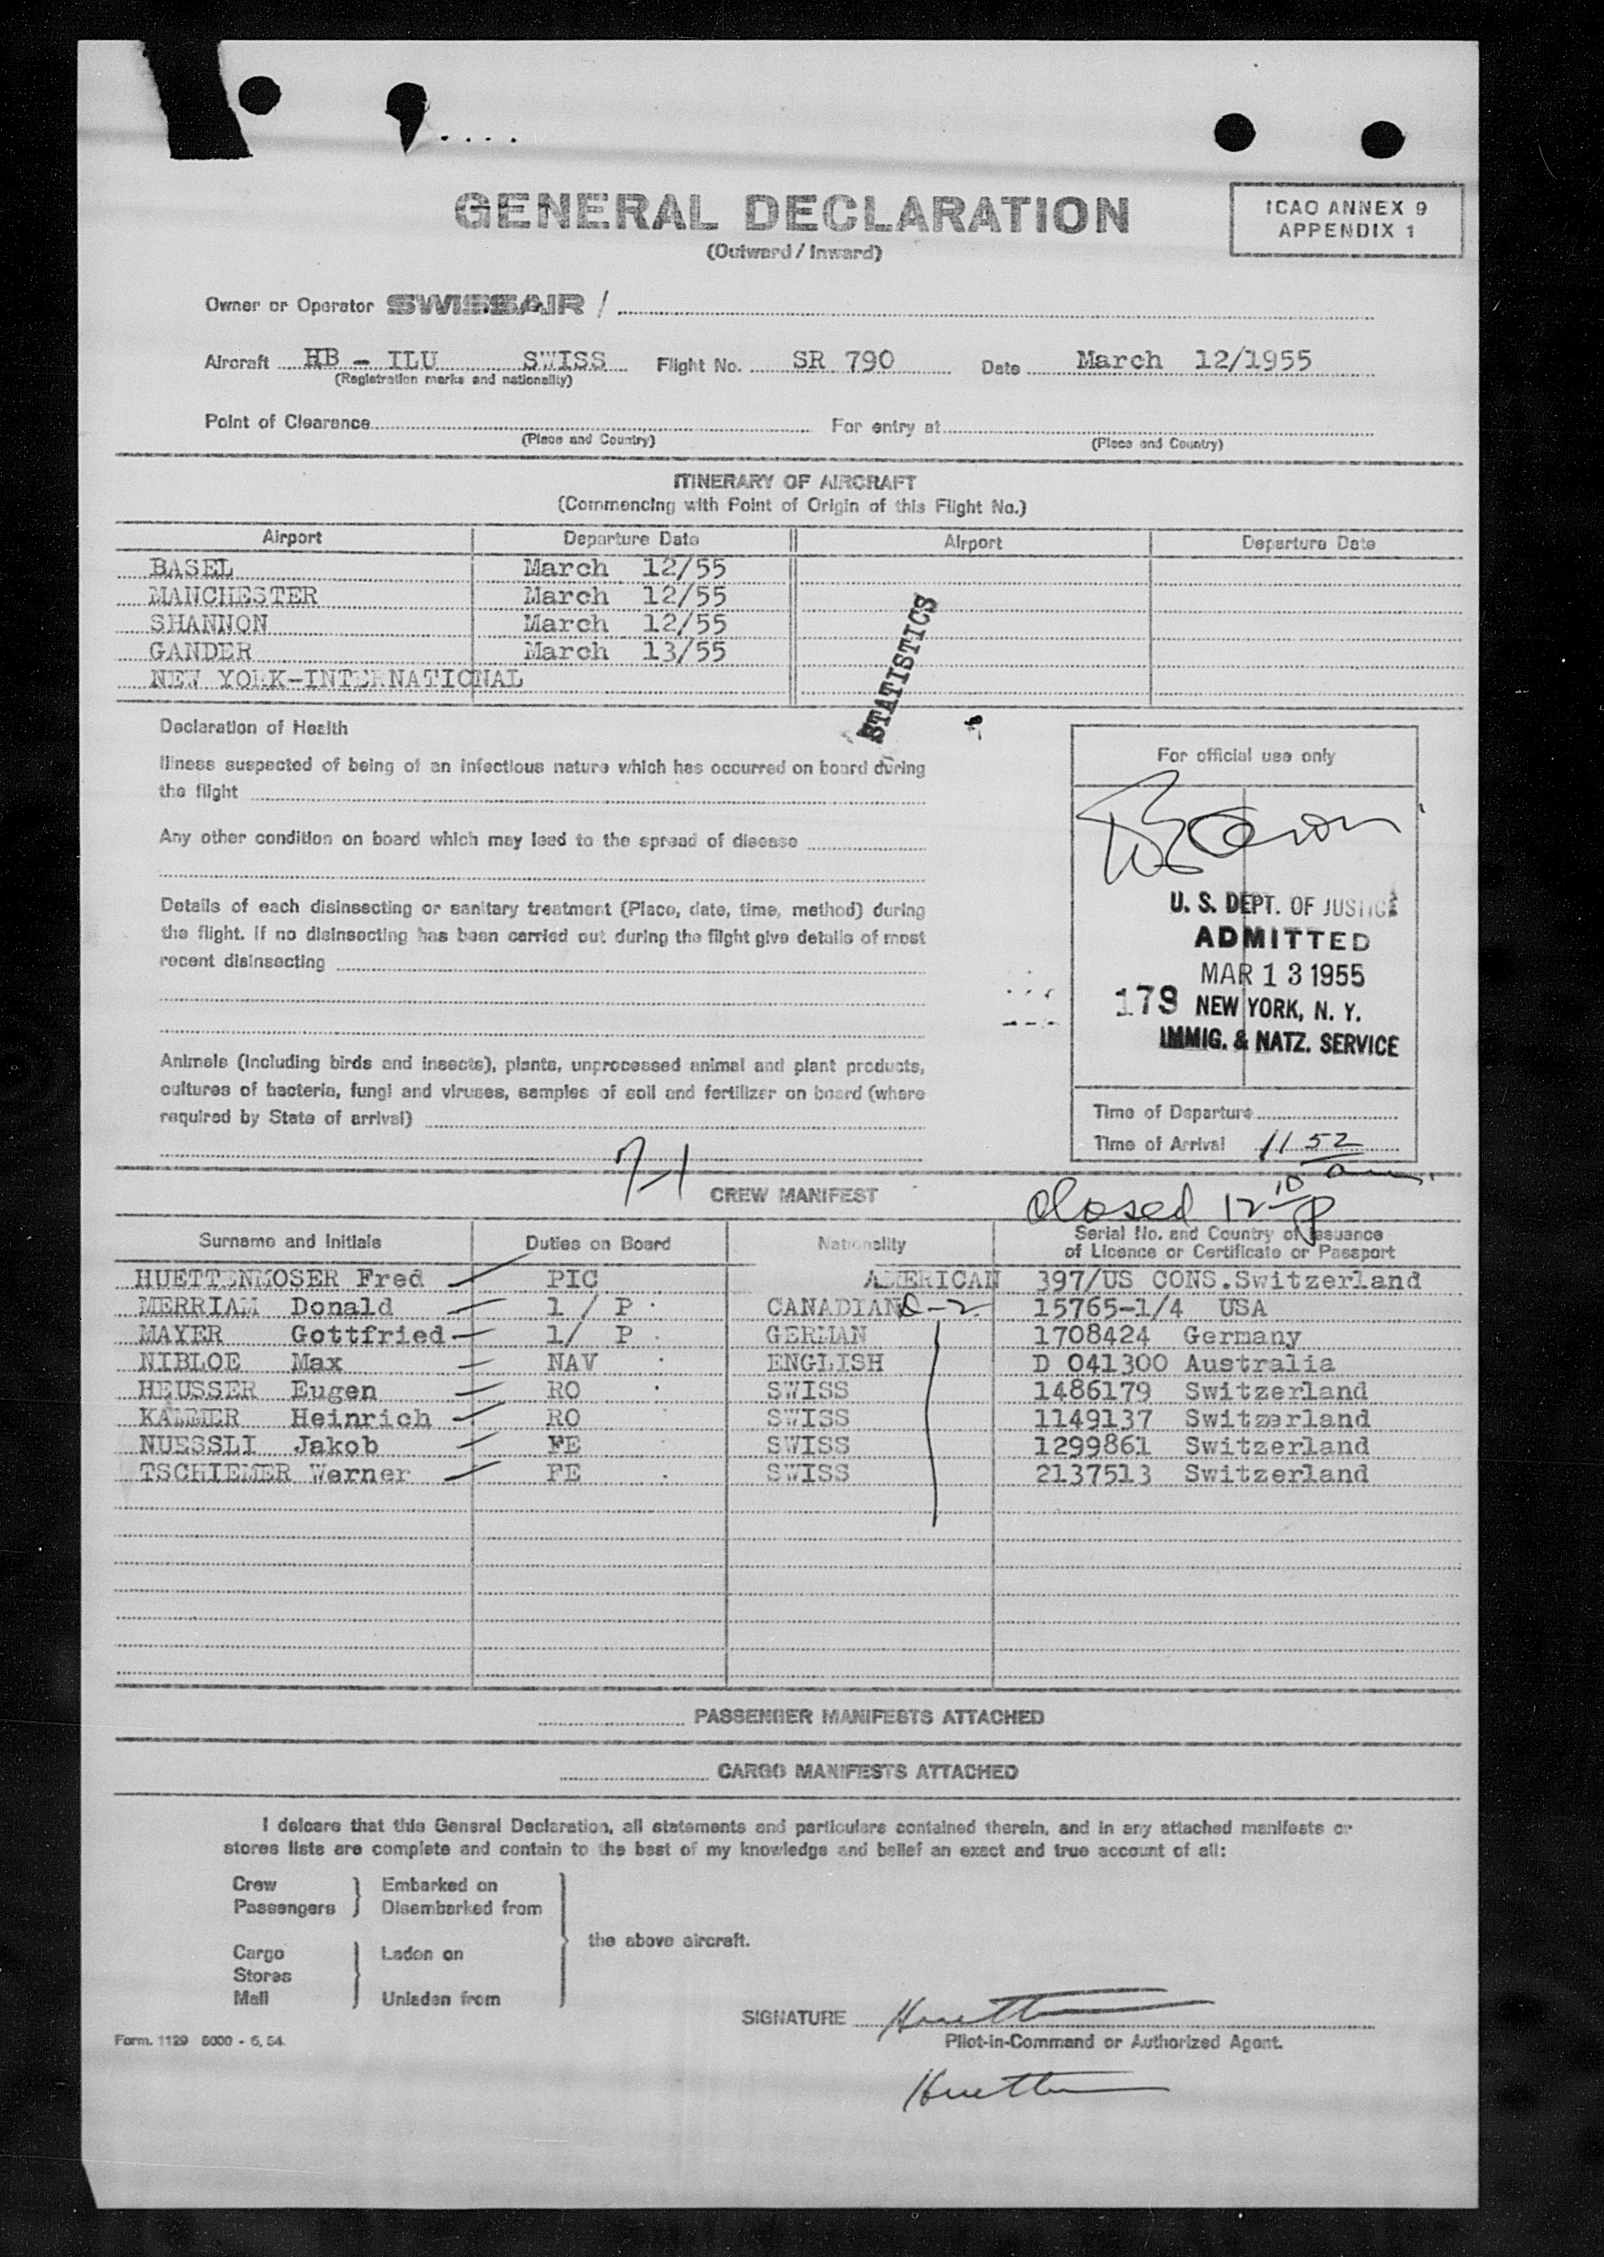 GENERAL DECLARATION
(Outward / Inward)
ICAO ANNEX 9
APPENDIX 1
Owner or Operator SWISSAIR /
Aircraft HB - ILU SWISS Flight No. SR 790 Date March 12/1955
(Registration marks and nationality)
Point of Clearance For entry at
(Place and Country) (Place and Country)
ITINERARY OF AIRCRAFT
(Commencing with Point of Origin of this Flight No.)
Airport Departure Date Airport Departure Date
BASEL March 12/55
MANCHESTER March 12/55
SHANNON March 12/55
GANDER March 13/55
NEW YORK-INTERNATIONAL
STATISTICS
Declaration of Health
Illness suspected of being of an infectious nature which has occurred on board during
the flight
Any other condition on board which may lead to the spread of disease
Details of each disinsecting or sanitary treatment (Place, date, time, method) during
the flight. If no disinsecting has been carried out during the flight give details of most
recent disinsecting
Animals (including birds and insects), plants, unprocessed animal and plant products,
cultures of bacteria, fungi and viruses, samples of soil and fertilizer on board (where
required by State of arrival)
For official use only
U. S. DEPT. OF JUSTICE
ADMITTED
MAR 13 1955
179 NEW YORK, N. Y.
IMMIG. & NATZ. SERVICE
Time of Departure
Time of Arrival 11 52
am
7-1
CREW MANIFEST
closed 12 10 p
Surname and Initials Duties on Board Nationality Serial No. and Country of Issuance
of Licence or Certificate or Passport
HUETTENMOSER Fred PIC AMERICAN 397/US CONS.Switzerland
MERRIAM Donald 1 / P CANADIAN D-2 15765-1/4 USA
MAYER Gottfried 1/ P GERMAN 1708424 Germany
NIBLOE Max NAV ENGLISH D 041300 Australia
HEUSSER Eugen RO SWISS 1486179 Switzerland
KAMMER Heinrich RO SWISS 1149137 Switzerland
NUESSLI Jakob FE SWISS 1299861 Switzerland
TSCHIEMER Werner FE SWISS 2137513 Switzerland
PASSENGER MANIFESTS ATTACHED
CARGO MANIFESTS ATTACHED
I delcare that this General Declaration, all statements and particulars contained therein, and in any attached manifests or
stores lists are complete and contain to the best of my knowledge and belief an exact and true account of all:
Crew Embarked on
Passengers Disembarked from
the above aircraft.
Cargo Laden on
Stores
Mail Unladen from
SIGNATURE
Pilot-in-Command or Authorized Agent.
Form. 1129 5000 - 6, 54